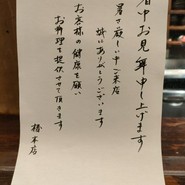 暑中お見舞申し上げます
暑さ厳しい中ご来店
誠にありがとうございます
お客様の健康を願い
お料理を提供させて頂きます
椿本店